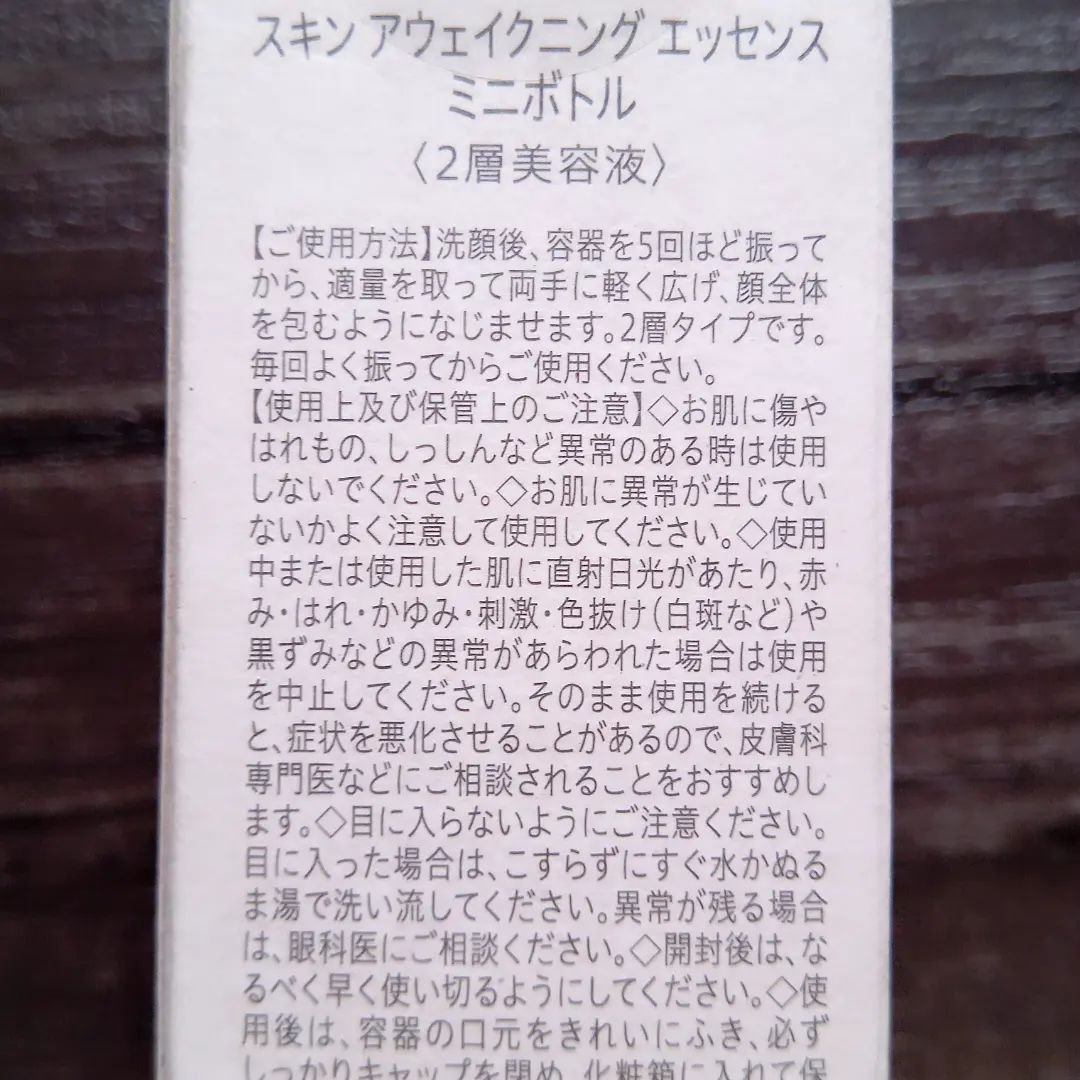 スキン アウェイクニング エッセンス
ミニボトル
〈2層美容液〉
【ご使用方法】洗顔後、容器を5回ほど振って
から、適量を取って両手に軽く広げ、顔全体
を包むようになじませます。2層タイプです。
毎回よく振ってからご使用ください。
【使用上及び保管上のご注意】◇お肌に傷や
はれもの、しっしんなど異常のある時は使用
しないでください。◇お肌に異常が生じてい
ないかよく注意して使用してください。◇使用
中または使用した肌に直射日光があたり、赤
み・はれ・かゆみ・刺激・色抜け(白斑など)や
黒ずみなどの異常があらわれた場合は使用
を中止してください。そのまま使用を続ける
と、症状を悪化させることがあるので、皮膚科
専門医などにご相談されることをおすすめし
ます。◇目に入らないようにご注意ください。
目に入った場合は、こすらずにすぐ水かぬる
ま湯で洗い流してください。異常が残る場合
は、眼科医にご相談ください。◇開封後は、な
るべく早く使い切るようにしてください。◇使
用後は、容器の口元をきれいにふき、必ず
しっかりキャップを閉め、化粧箱に入れて保